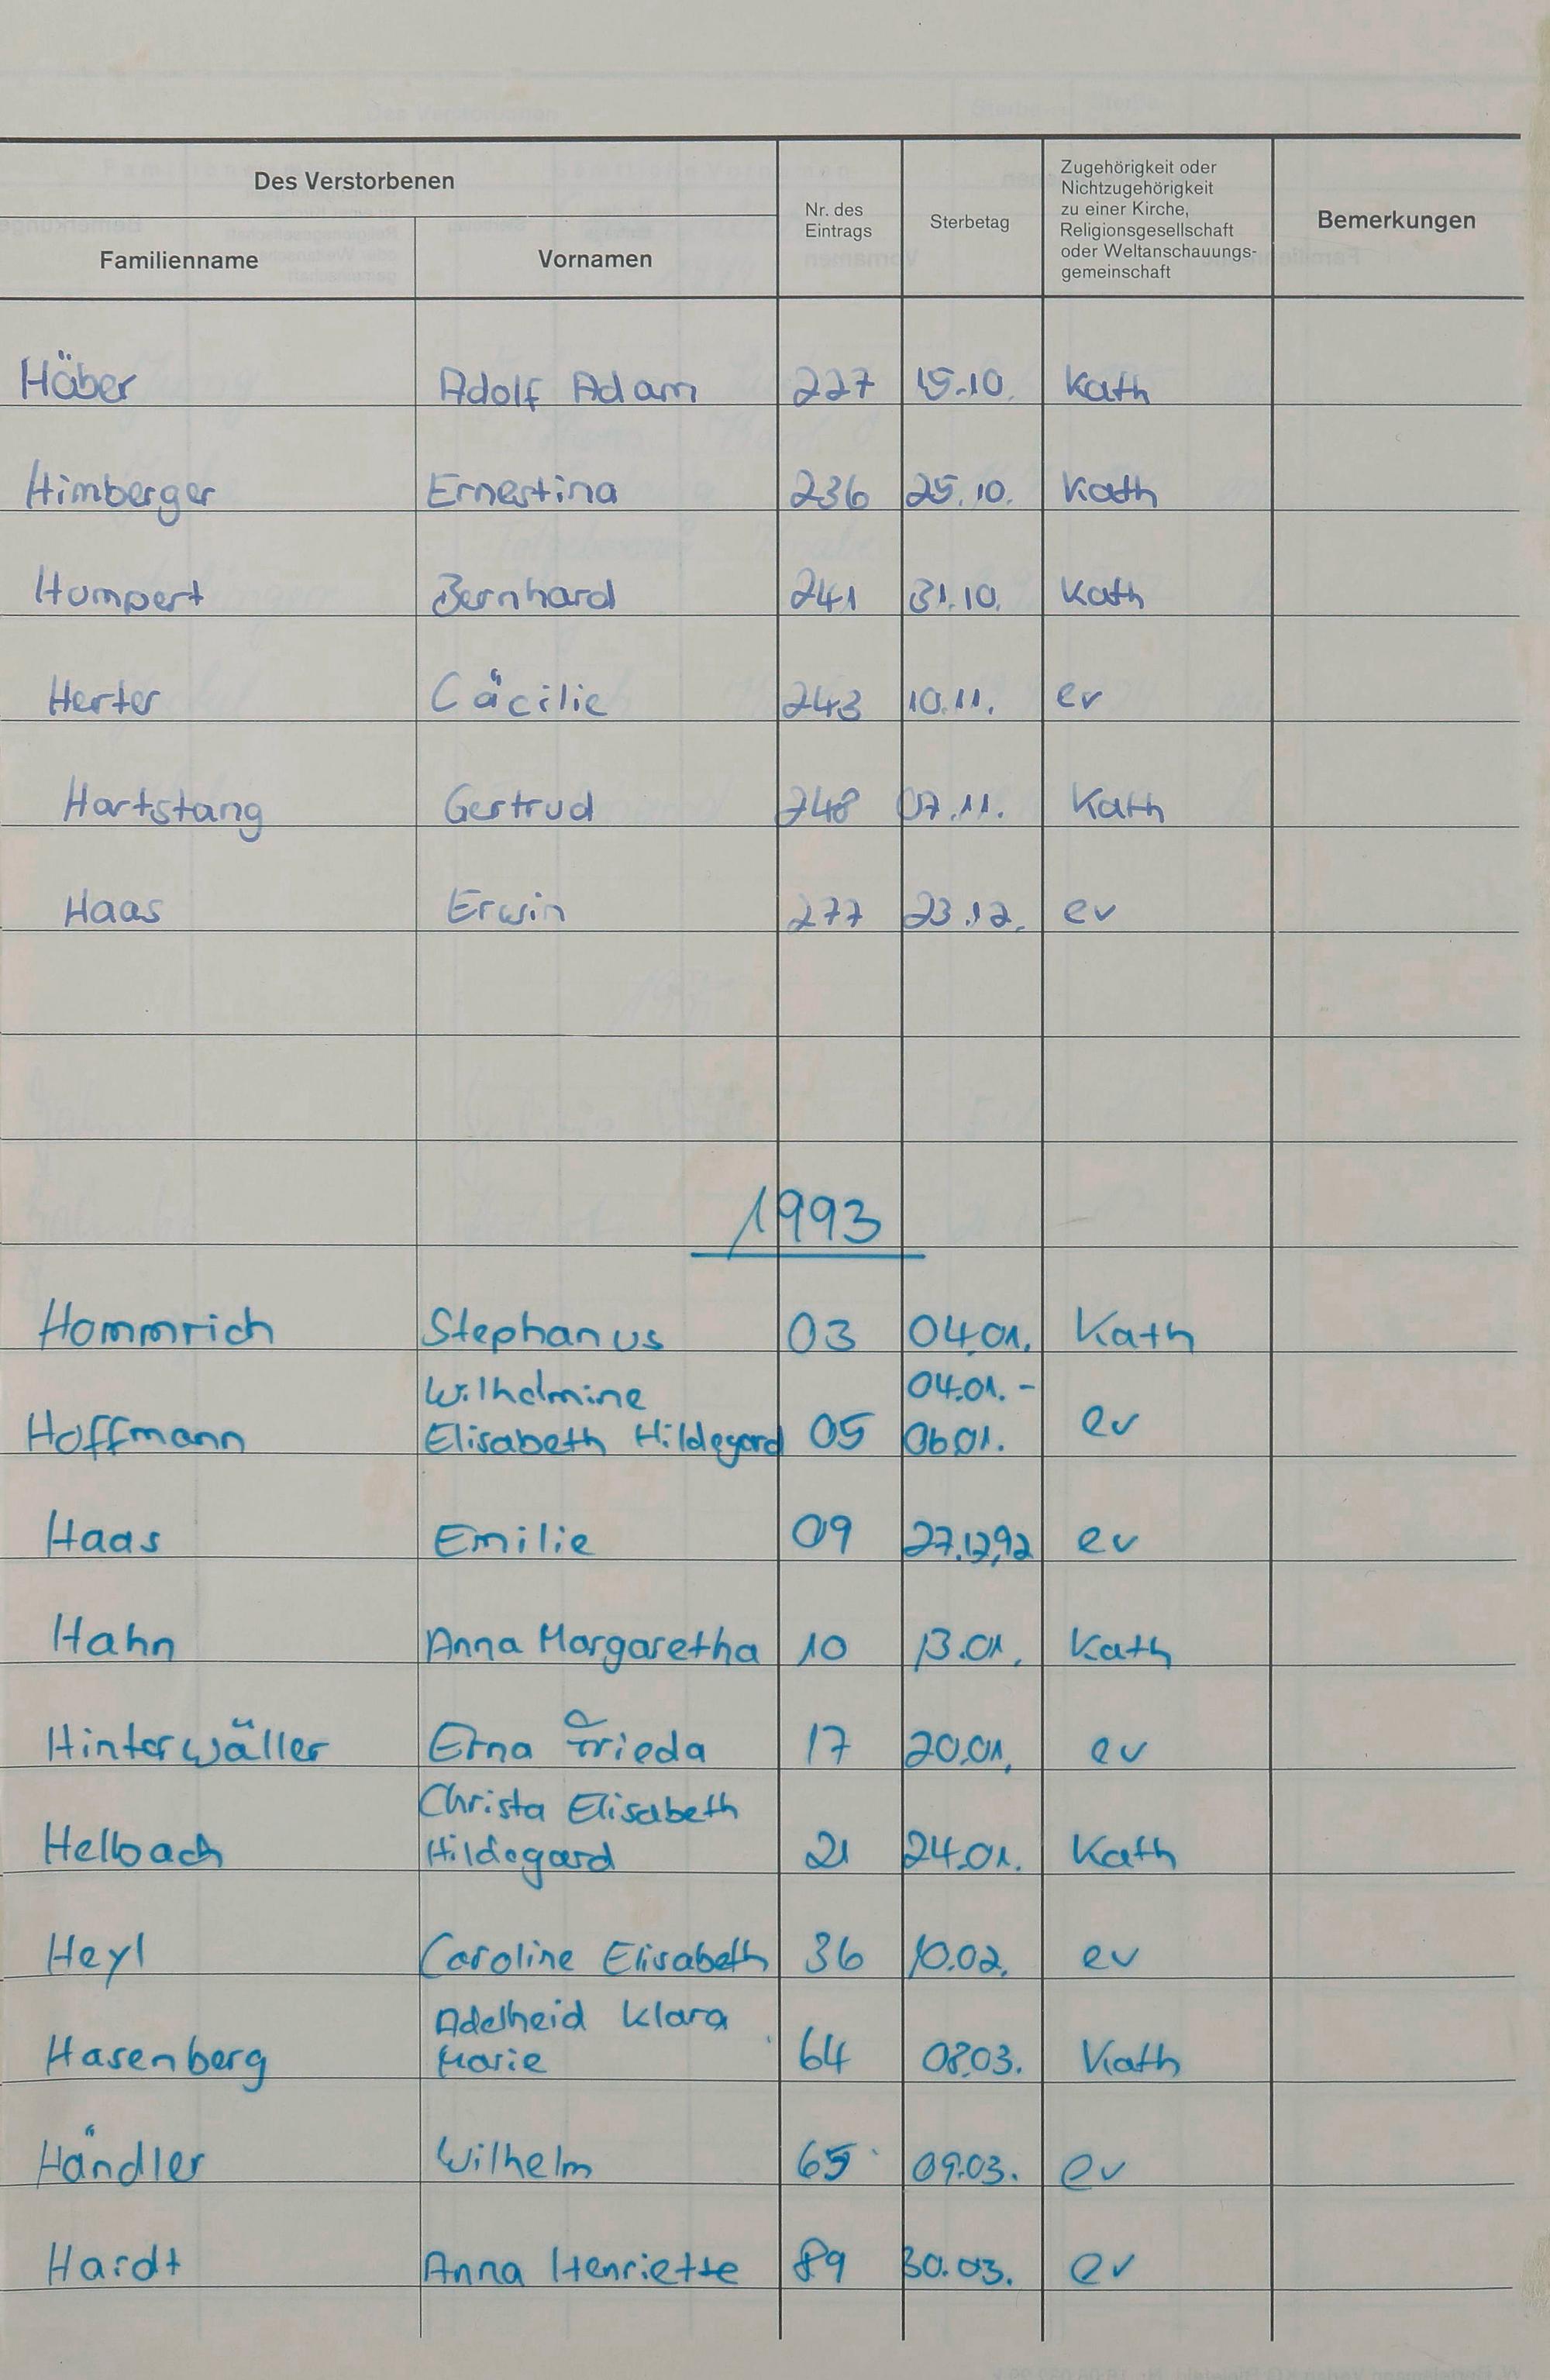 Des Verstorbenen
Familienname
Vornamen
Nr. des
Eintrags
Sterbetag
Zugehörigkeit oder
Nichtzugehörigkeit
zu einer Kirche,
Religionsgesellschaft
oder Weltanschauungs-
gemeinschaft
Bemerkungen
Häber Adolf Adam 227 15.10. Kath
Himberger Ernestina 236 25.10. Kath
Humpert Bernhard 241 31.10. Kath
Herter Cäcilie 243 10.11. ev
Hartstang Gertrud 248 07.11. Kath
Haas Erwin 277 23.12. ev
1993
Hommrich Stephanus 03 04.01. Kath
Wilhelmine 04.01. -
Hoffmann Elisabeth Hildegard 05 06.01. ev
Haas Emilie 09 27.12.92 ev
Hahn Anna Margaretha 10 13.01. Kath
Hinterwäller Erna Frieda 17 20.01. ev
Christa Elisabeth
Helbach Hildegard 21 24.01. Kath
Heyl Caroline Elisabeth 36 10.02. ev
Adelheid Klara
Hasenberg Marie 64 08.03. Kath
Händler Wilhelm 65 09.03. ev
Hardt Anna Henriette 89 30.03. ev